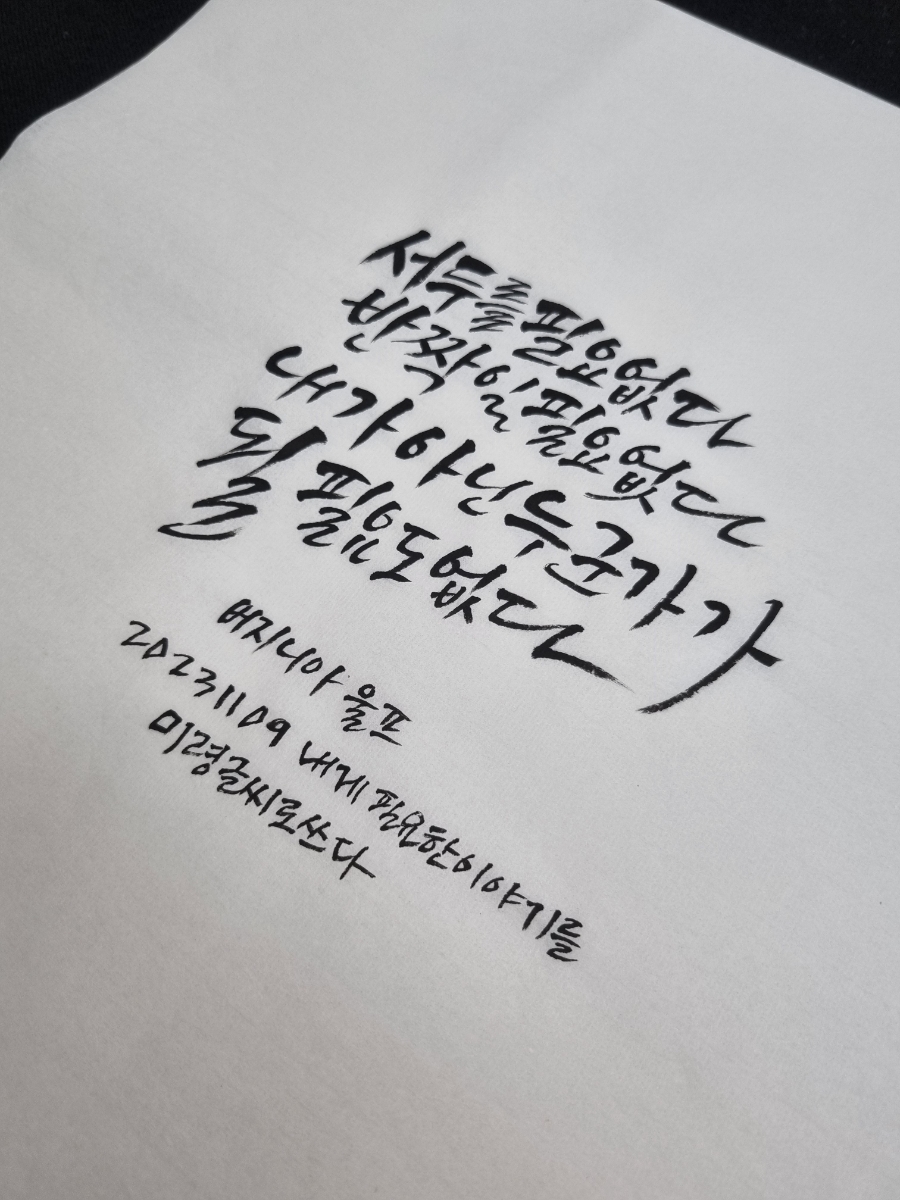 서두를 필요 없다
반짝일 필요 없다
내가 아닌 누군가가
될 필요도 없다
버지니아 울프
20231109 내게 필요한 이야기를
미령글씨로 쓰다